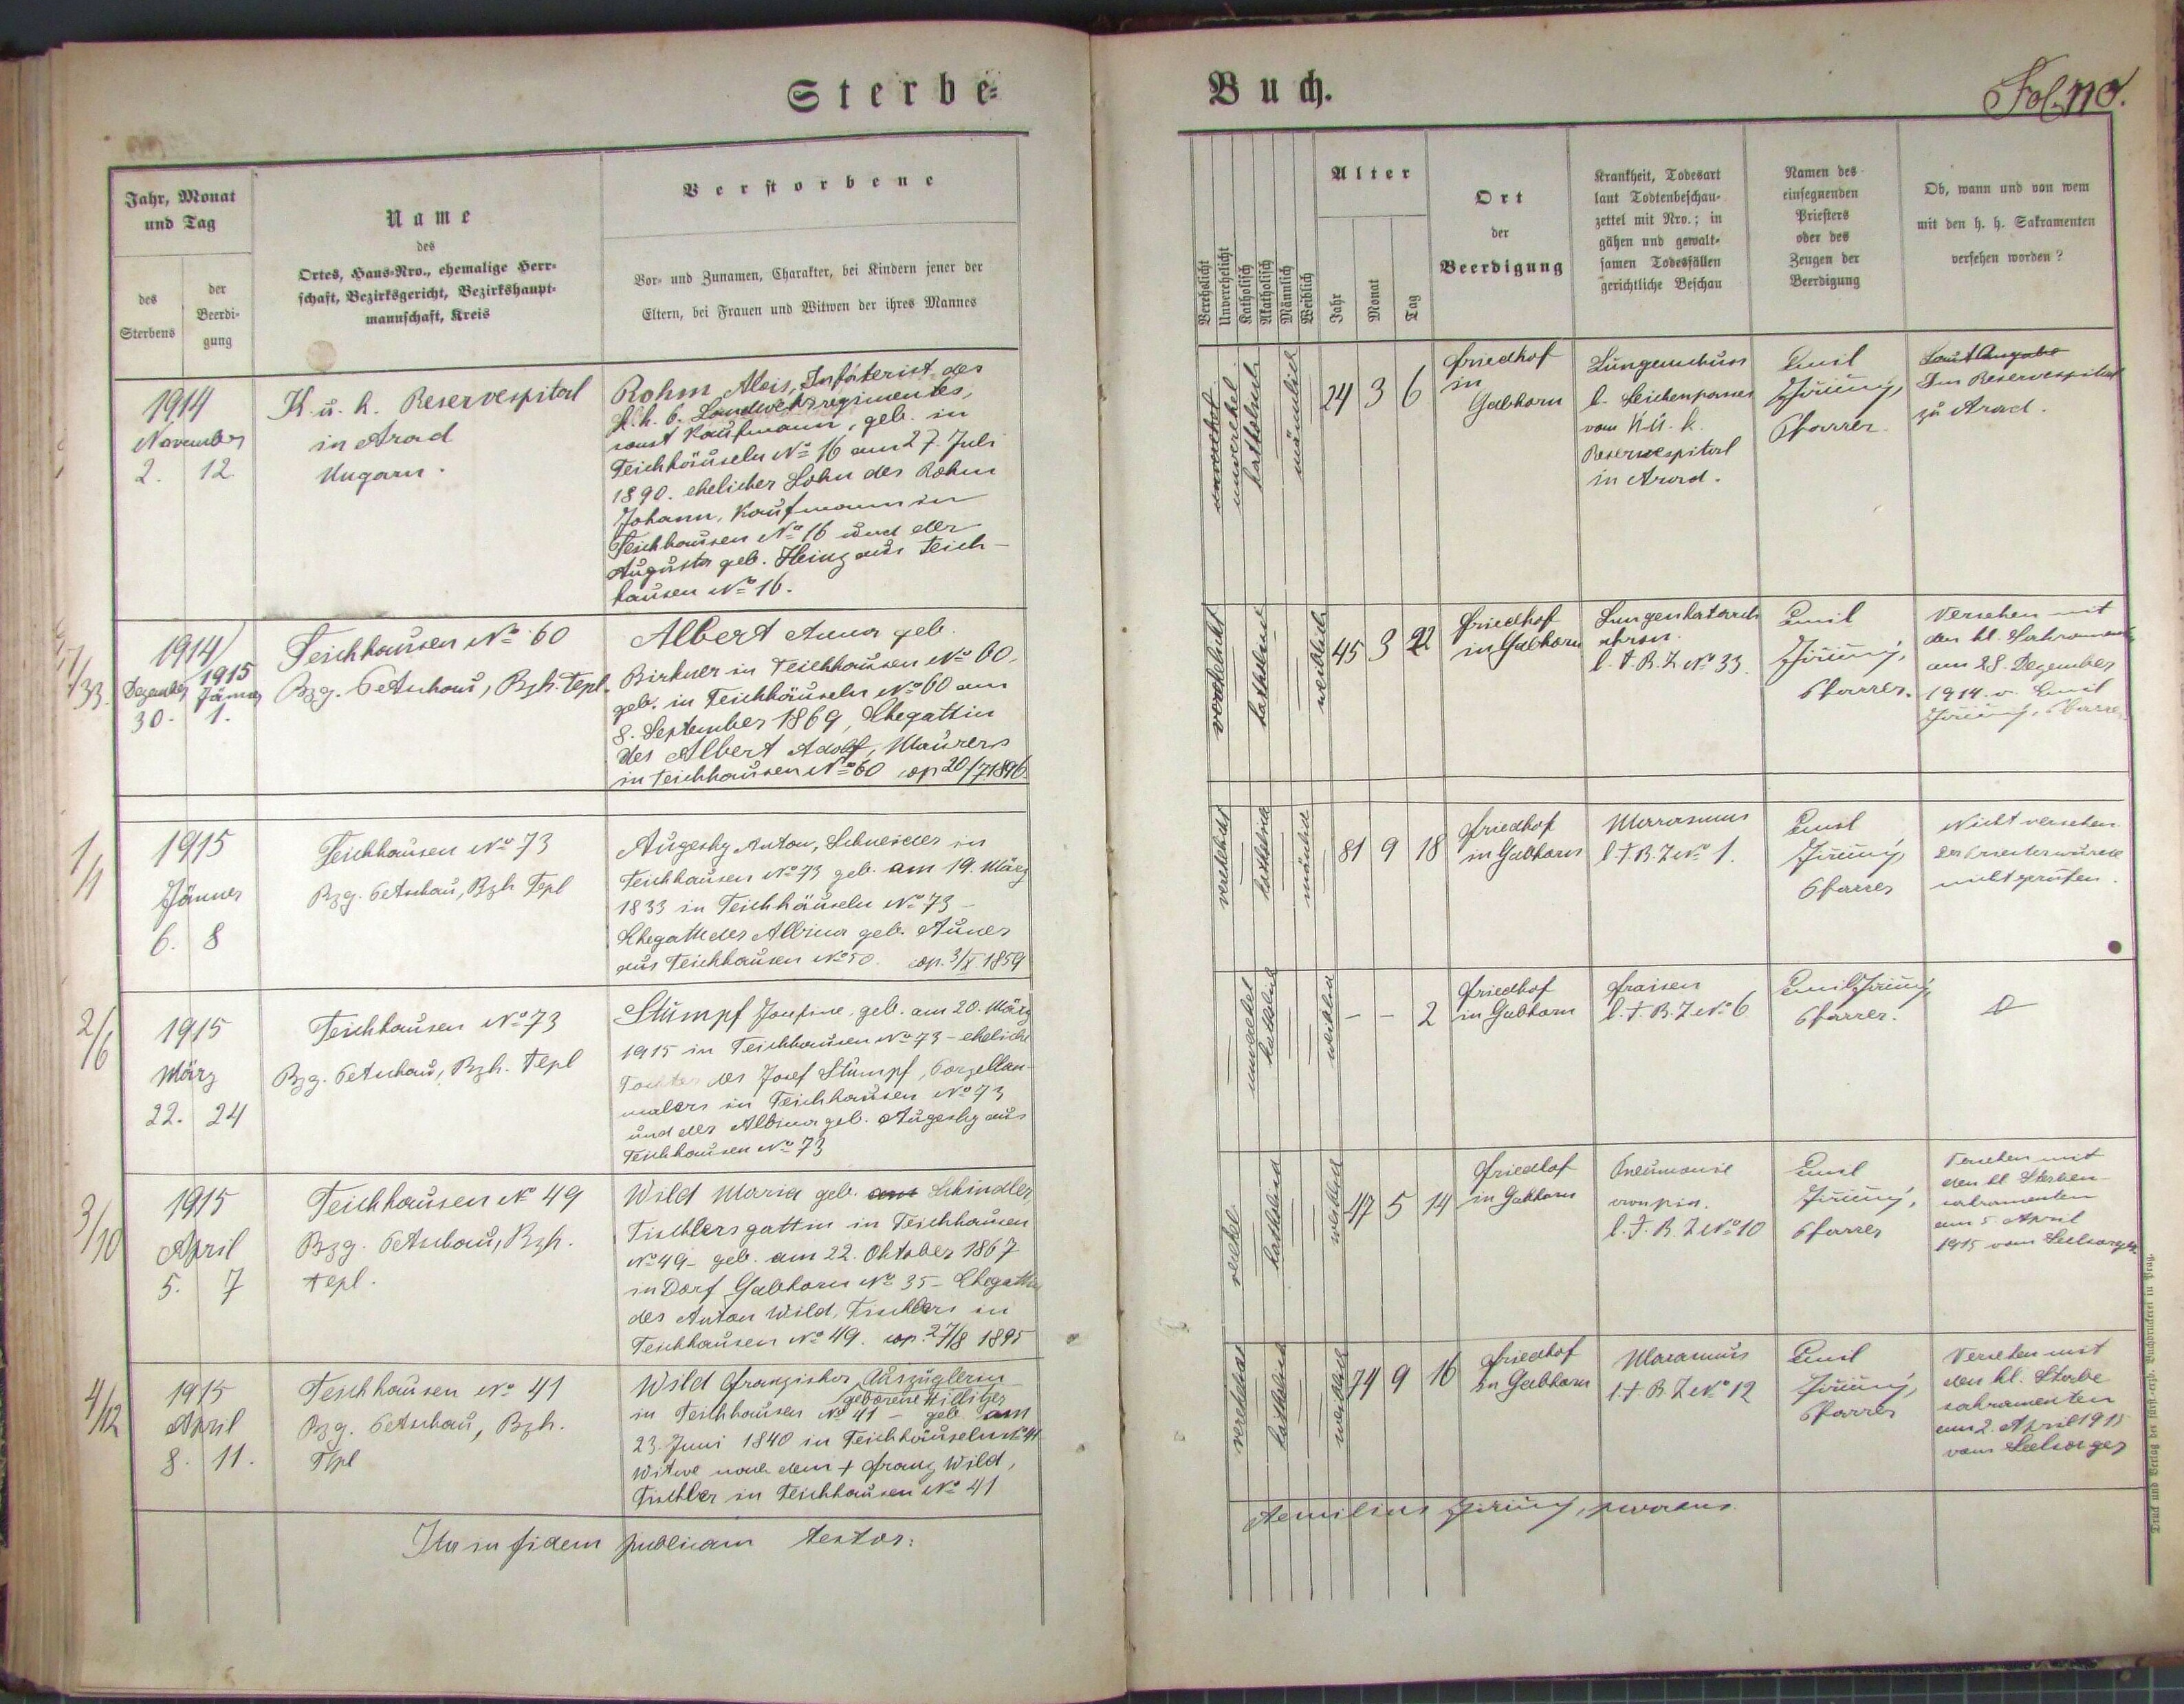 Sterbe-
Buch.
Fol. 110.
Jahr, Monat
und Tag
des
Sterbens
der
Beerdi-
gung
Name
des
Ortes, Haus-Nro., ehemalige Herr-
schaft, Bezirksgericht, Bezirkshaupt-
mannschaft, Kreis
Verstorbene
Vor- und Zunamen, Charakter, bei Kindern jener der
Eltern, bei Frauen und Witwen der ihres Mannes
Verehelicht
Unverehelicht
Katholisch
Akatholisch
Männlich
Weiblich
Alter
Jahr
Monat
Tag
Ort
der
Beerdigung
Krankheit, Todesart
laut Todtenbeschau-
zettel mit Nro.; in
gähen und gewalt-
samen Todesfällen
gerichtliche Beschau
Namen des
einsegnenden
Priesters
oder des
Zeugen der
Beerdigung
Ob, wann und von wem
mit den h. h. Sakramenten
versehen worden?
1914
November
2. 12.
K. u. k. Reservespital
in Arad
Ungarn.
Rohm Alois, Infaterist des
k. k. 6. Landwehrregimentes,
sonst Kaufmann, geb. in
Teichhäuseln No 16 am 27. Juli
1890. ehelicher Sohn des Rohm
Johann, Kaufmann in
Teichhausen No 16 und der
Augusta geb. Heinz aus Teich-
hausen No 16.
unverehel.
unverehel
katholisch
männlich
24 3 6
Friedhof
in
Gabhorn
Lungenschuss
l. Leichenpasses
vom K. u. k.
Reservespital
in Arad.
Emil
Pfarrer.
Laut Angabe
Im Reservespital
zu Arad.
1914/
1915
Dezember Jänner
30. 1.
/33.
Teichhausen No 60
Bzg. Petschau, Bzh. Tepl.
Albert Anna geb.
Birkner in Teichhausen No 60.
geb. in Teichhäuseln No 60 am
8. September 1869, Ehegattin
des Albert Adolf, Maurers
in Teichhausen No 60 cop. 20/7 1896.
verehelicht
katholisch
weiblich
45 3 22
Friedhof
in Gabhorn
Lungenkatarrh
chron.
l. T. B. Z. No 33.
Emil
Pfarrer.
Versehen mit
den hl. Sakramenten
am 28. Dezember
1914. v. Emil
1/1
1915
Jänner
6. 8
Teichhausen No 73
Bzg. Petschau, Bzh Tepl
Augesky Anton, Schneider in
Teichhausen No 73 geb. am 19. März
1833 in Teichhäuseln No 73 -
Ehegatte der Albina geb.
aus Teichhausen No 50. cop. 3/X 1859
verehelicht
katholisch
männlich
81 9 18
Friedhof
in Gabhorn
Marasmus
l. T. B. Z. No 1.
Emil
Pfarrer
Nicht versehen.
Der Priester wurde
nicht gerufen.
2/6
1915
März
22. 24
Teichhausen No 73
Bzg. Petschau, Bzh. Tepl
Stumpf Josefine, geb. am 20. März
1915 in Teichhausen No 73 - eheliche
Tochter des Josef Stumpf, Porzellan-
malers in Teichhausen No 73
und der Albina geb. Augesky aus
Teichhausen No 73
unverehel
katholisch
weiblich
- - 2
Friedhof
in Gabhorn
Fraisen
l. T. B. Z. No 6
Emil
Pfarrer.
3/10
1915
April
5. 7
Teichhausen No 49
Bzg. Petschau, Bzh.
Tepl.
Wild Maria geb. am Schindler,
Tischlersgattin in Teichhausen
No 49 - geb. am 22. Oktober 1867
in Dorf Gabhorn No 35 - Ehegattin
des Anton Wild, Tischlers in
Teichhausen No 49. cop. 27/8 1895
verehel.
katholisch
weiblich
47 5 14
Friedhof
in Gabhorn
Pneumonie
l. T. B. Z. No 10
Emil
Pfarrer
Versehen mit
den hl Sterbe-
sakramenten
am 5. April
1915 vom Seelsorger
4/12
1915
April
8. 11.
Teichhausen No 41
Bzg. Petschau, Bzh.
Tepl
Wild Franziska, Auszüglerin
geborene
in Teichhausen No 41 - geb. am
23. Juni 1840 in Teichhäuseln No 41
Witwe nach dem + Franz Wild,
Tischler in Teichhausen No 41
verehelicht
katholisch
weiblich
74 9 16
Friedhof
in Gabhorn
Marasmus
l. T. B. Z. No 12
Emil
Pfarrer
Versehen mit
den hl. Sterbe
sakramenten
am 2. April 1915
vom Seelsorger
Ita in fidem publicam testor:
Aemilius
Druck und Verlag der fürst-erzb. Buchdruckerei in Prag.